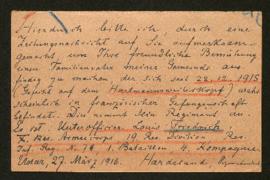 Hierdurch bitte ich, durch eine
Zeitungsnachricht auf Sie aufmerksam
gemacht, um Ihre freundliche Bemühung
einen Familienvater meiner Gemeinde aus-
findig zu machen, der sich seit 22.12.1915
(Gefecht auf dem Hartmannsweilerkopf) wahr-
scheinlich in französischer Gefangenschaft
befindet. Die nimmt sein Regiment an.
Es ist Unteroffizier Louis Friedrich
X. Res. Armeecorps 19 Res. Division Res.
Inf. Reg. N. 74 1. Bataillon 4. Kompagnie.
27. März 1916.